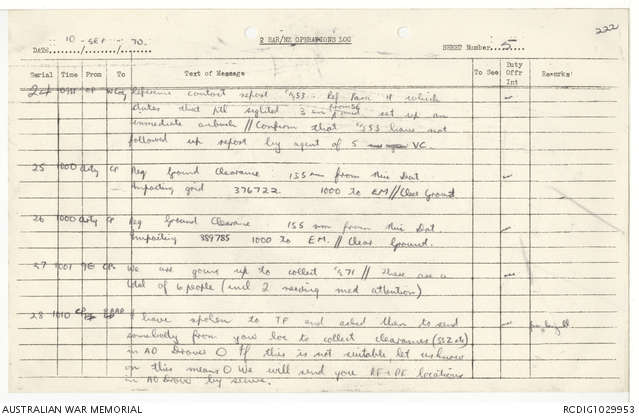 222
2 RAR/NZ OPERATIONS LOG
DATE 10 SEP 70
SHEET Number 5
Serial Time From To Text of Message To See Duty Offr Int Remarks
24 CP Reference contact report Ref Para H which
states that ptl sighted 3 en set up an
immediate ambush // Confirm that have not
followed up report by agent of 5 VC
25 1000 Arty CP Req Ground Clearance 155 mm from this Loc
Impacting grid 376722 1000 to EM // Clear Ground
26 1000 Arty CP Req Ground Clearance 155 mm from this
Impacting 389785 1000 to EM. // Clear Ground.
27 1001 CP We are going up to collect // There are a
total of 6 people (incl 2 needing med attention)
28 1010 CP I have spoken to TF and asked them to send
somebody from your loc to collect clearances
in AO Bravo O If this is not suitable let us know
on this means O We will send you locations
in AO Bravo by secure.
AUSTRALIAN WAR MEMORIAL
RCDIG1029953